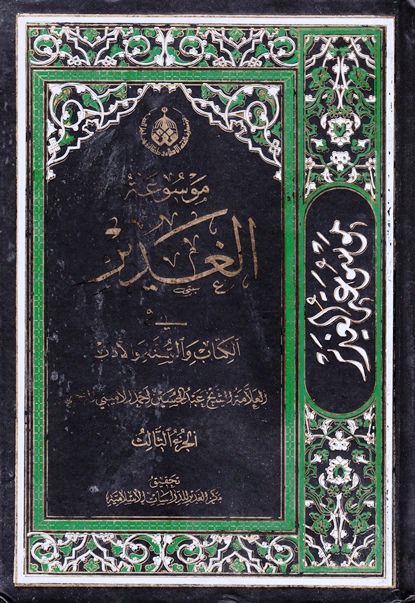 موسوعة
الغدير
في
الكتاب والسنة والأدب
العلامة الشيخ عبد الحسين أحمد الأميني النجفي
الجزء الثالث
تحقيق
مركز الغدير للدراسات الإسلامية
موسوعة الغدير